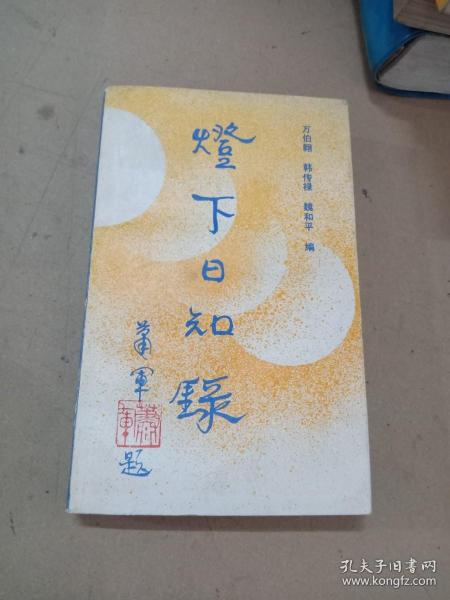 万伯翱 韩传禄 魏和平 编
燈下日知録
蕭軍題
蕭軍
孔夫子旧书网
www.kongfz.com